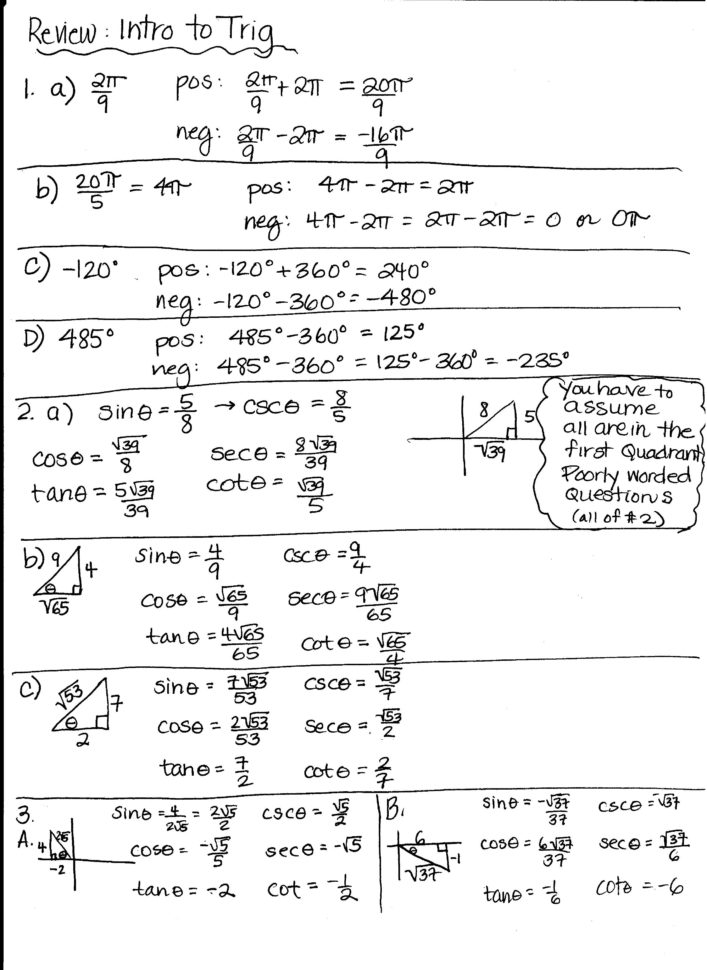 Review: Intro to Trig
1. a) 2π/9 pos: 2π/9 + 2π = 20π/9
neg: 2π/9 - 2π = -16π/9
b) 20π/5 = 4π pos: 4π - 2π = 2π
neg: 4π - 2π = 2π - 2π = 0 or 0π
c) -120° pos: -120° + 360° = 240°
neg: -120° - 360° = -480°
D) 485° pos: 485° - 360° = 125°
neg: 485° - 360° = 125° - 360° = -235°
2. a) sinθ = 5/8 → cscθ = 8/5
cosθ = √39/8 secθ = 8√39/39
tanθ = 5√39/39 cotθ = √39/5
8 5
√39
You have to
assume
all are in the
first Quadrant
Poorly worded
Questions
(all of #2)
b) 9 4 θ √65
sinθ = 4/9 cscθ = 9/4
cosθ = √65/9 secθ = 9√65/65
tanθ = 4√65/65 cotθ = √65/4
c) √53 7 θ 2
sinθ = 7√53/53 cscθ = √53/7
cosθ = 2√53/53 secθ = √53/2
tanθ = 7/2 cotθ = 2/7
3.
A. 4 2√5 θ -2
sinθ = 4/2√5 = 2√5/2 cscθ = √5/2
cosθ = -√5/5 secθ = -√5
tanθ = -2 cot = -1/2
B. 6 θ -1 √37
sinθ = -√37/37 cscθ = -√37
cosθ = 6√37/37 secθ = √37/6
tanθ = -1/6 cotθ = -6